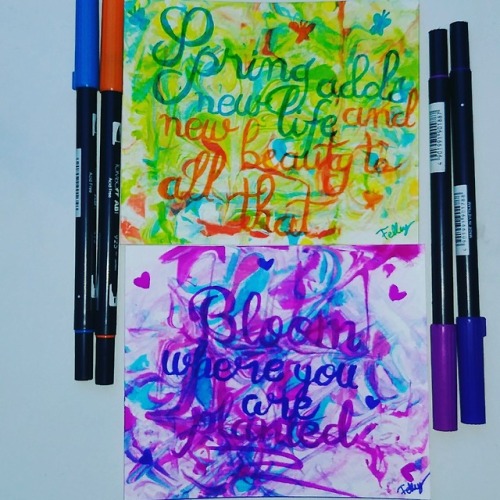 Spring adds
new life and
new beauty to
all that
Felly
Bloom
where you
are
planted
Felly